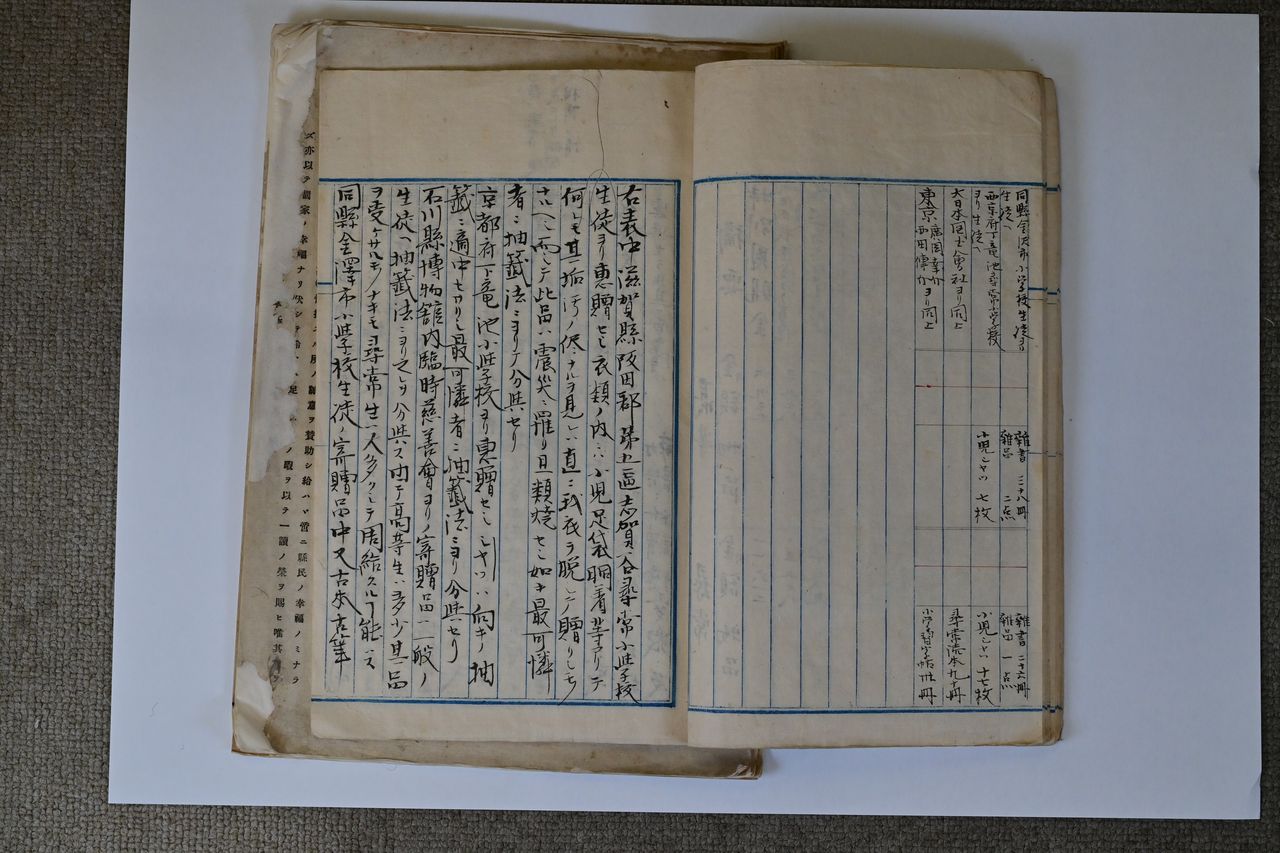 同縣金沢市小学校生徒ヨリ
生徒ヘ
雜書 三十八冊
雜書 二十六冊
西京府下竜池尋常小学校
雜品 二点
雜品 一点
ヨリ生徒ヘ
小児シヤツ 七枚
小児シヤツ 十七枚
大日本図書會社ヨリ同上
尋常讀本 九十冊
東京 西田傳介ヨリ同上
小学習字帖 卅冊
右表中滋賀縣阪田郡第五區志賀谷尋常小學校
生徒ヨリ惠贈セシ衣類ノ内ニハ小児足袋胴着等アリテ
何レモ其垢汚ノ侭ナルヲ見レハ直ニ我衣ヲ脱シテ贈リシモ
ナルヘシ而シテ此品ハ震災ニ罹リ且類燒セシ如キ最可憐
者ニ抽籤法ニヨリテ分與セリ
京都府下竜池小學校ヨリ惠贈セシシヤツハ向キノ抽
籤ニ適中セサリシ最可憐者ニ抽籤法ニヨリ分與セリ
石川縣博物舘内臨時慈善會ヨリノ寄贈品ハ一般ノ
生徒ヘ抽籤法ニヨリ之レヲ分與ス由テ高等生ハ多少其品
ヲ受ケサルモノナキモ尋常生ハ人多クシテ周給スル丁能ハス
同縣金澤市小學校生徒ノ寄贈品中又古本古筆
願意ヲ贊助シ給ハヾ啻ニ縣民ノ幸福ノミナラ
ズ亦以テ國家ノ幸福ナリ
ノ暇ヲ以テ一讀ノ榮ヲ賜ヒ唯其